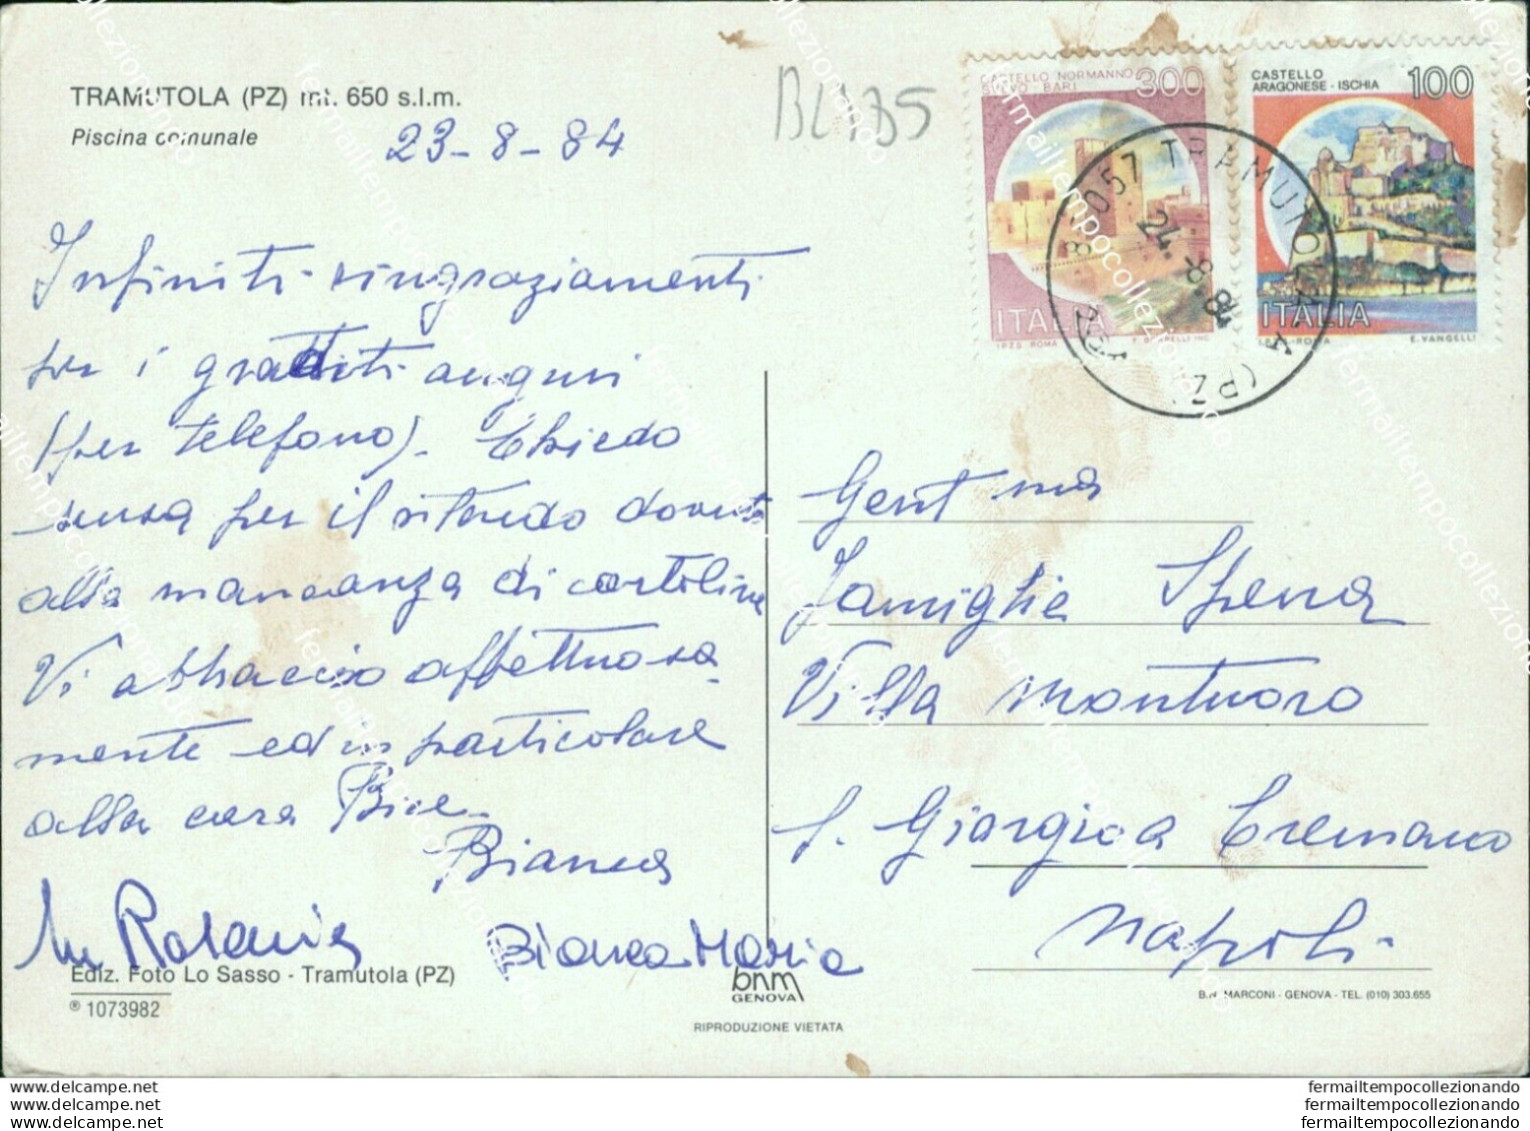 TRAMUTOLA (PZ) mt. 650 s.l.m.
Piscina comunale
23-8-84
Infiniti ringraziamenti
per i graditi auguri
(per telefono). Chiedo
scusa per il ritardo dovuto
alla mancanza di cartoline
Vi abbraccio affettuosa
mente ed in particolare
alla cara Bice.
Bianca
Bianca Maria
Ediz. Foto Lo Sasso - Tramutola (PZ)
® 1073982
bnm
GENOVA
RIPRODUZIONE VIETATA
CASTELLO NORMANNO
SVEVO - BARI
300
ITALIA
I.P.Z.S. ROMA
CASTELLO
ARAGONESE - ISCHIA
100
ITALIA
I.P.Z.S.-ROMA
E. VANGELLI
85057 TRAMUTOLA
24.-8.84
(PZ)
Gent ma
Famiglia Spena
Villa Montuoro
S. Giorgio a Cremano
Napoli
B.N. MARCONI - GENOVA - TEL. (010) 303.655
www.delcampe.net
www.delcampe.net
www.delcampe.net
fermailtempocollezionando
fermailtempocollezionando
fermailtempocollezionando